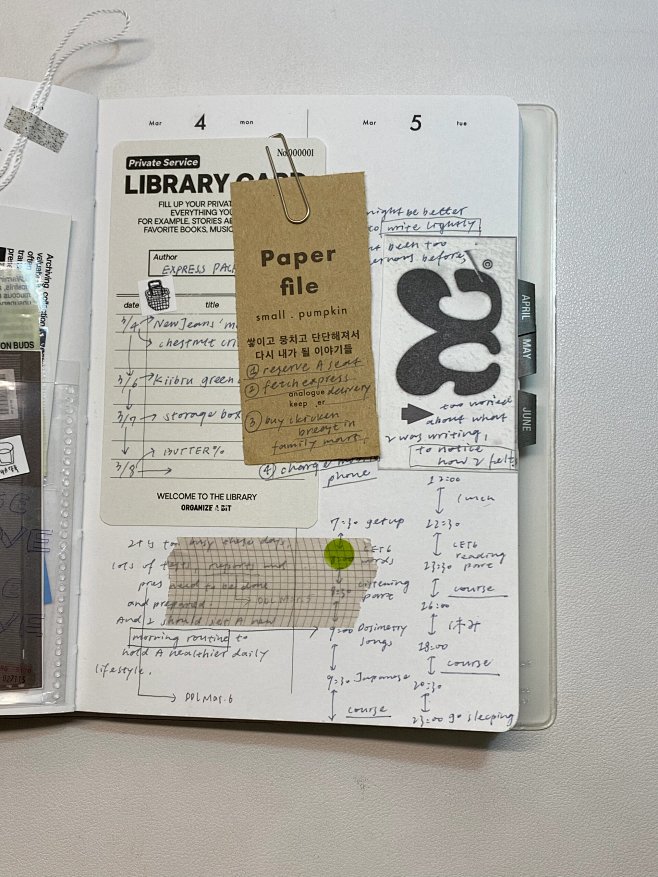 Mar 4 mon
Mar 5 tue
Private Service
No.000001
LIBRARY CARD
FILL UP YOUR PRIVAT
EVERYTHING YOU
FOR EXAMPLE, STORIES AB
FAVORITE BOOKS, MUSIC
Author
EXPRESS PACK
date title
3/4 NewJeans'
chestnut
3/6 Kiibru green
3/7 storage box
BUTTER%
3/8
WELCOME TO THE LIBRARY
ORGANIZE A BIT
Paper
file
small . pumpkin
쌓이고 뭉치고 단단해져서
다시 내가 될 이야기들
① reserve A seat
② fetch express
analogue delivery
keep er
③ buy chicken
breast in
family mart.
④ charge
phone
might be better
to write lightly
been too
before
®
too worried
about what
I was writing,
to notice
how I felt
APRIL
MAY
JUNE
It is too busy these days,
lots of tests, reports and
need to be done
and prepared. DDL Mar.5
And I should set A new
morning routine to
hold A healthier daily
lifestyle.
DDL Mar.6
7:30 get up
CET6
words
8:30 listening
part
9:00 Dosimetry
songs
9:30 Japanese
course
12:00
lunch
22:30
CET6
reading
23:30 part
course
26:00
28:00
course
20:30
23:00 go sleeping
Archiving
ON BUDS